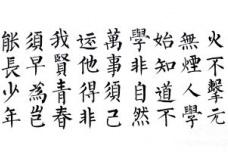 火不擊元
無煙人學
始知道不
學非自然
萬事須己
运他得非
我賢青春
須早為岂
能長少年